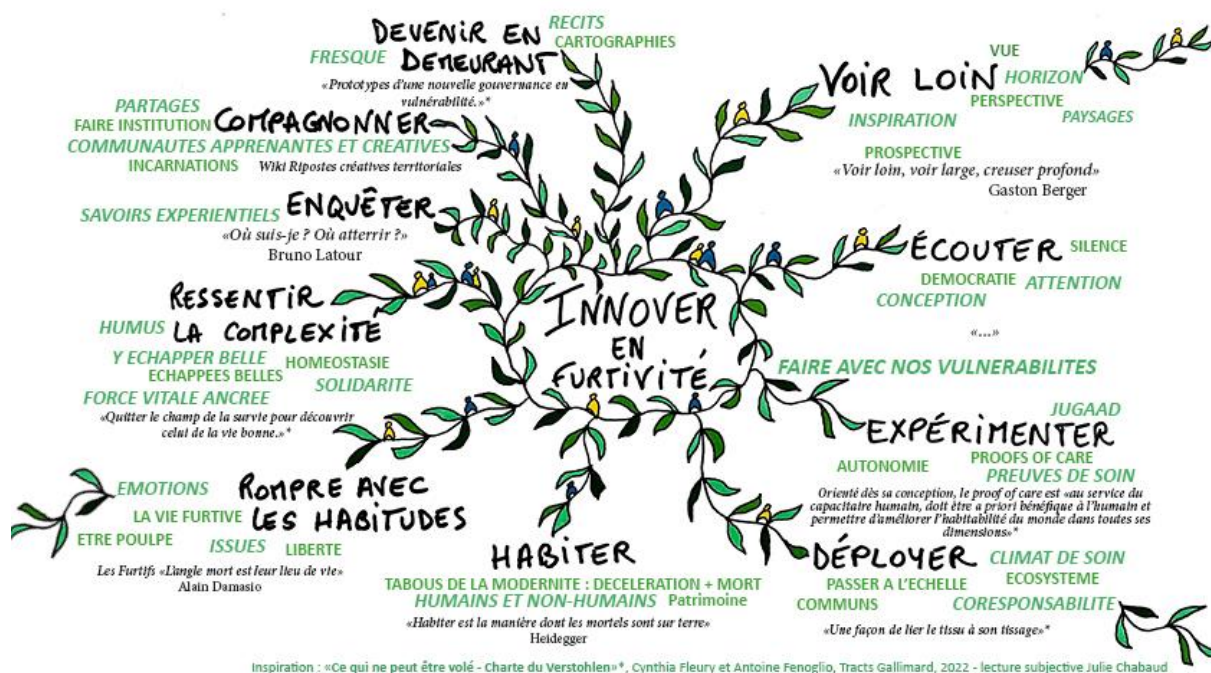 INNOVER
EN
FURTIVITÉ
DEVENIR EN
DEMEURANT
RECITS
CARTOGRAPHIES
FRESQUE
«Prototypes d'une nouvelle gouvernance en
vulnérabilité.»*
VOIR LOIN
VUE
HORIZON
PERSPECTIVE
PAYSAGES
INSPIRATION
PROSPECTIVE
«Voir loin, voir large, creuser profond»
Gaston Berger
PARTAGES
FAIRE INSTITUTION
COMPAGNONNER
COMMUNAUTES APPRENANTES ET CREATIVES
INCARNATIONS
Wiki Ripostes créatives territoriales
SAVOIRS EXPERIENTIELS
ENQUÊTER
«Où suis-je ? Où atterrir ?»
Bruno Latour
ÉCOUTER
SILENCE
DEMOCRATIE
ATTENTION
CONCEPTION
«...»
RESSENTIR
LA COMPLEXITÉ
HUMUS
Y ECHAPPER BELLE
HOMEOSTASIE
ECHAPPEES BELLES
SOLIDARITE
FORCE VITALE ANCREE
«Quitter le champ de la survie pour découvrir
celui de la vie bonne.»*
FAIRE AVEC NOS VULNERABILITES
JUGAAD
EXPÉRIMENTER
AUTONOMIE
PROOFS OF CARE
PREUVES DE SOIN
Orienté dès sa conception, le proof of care est «au service du
capacitaire humain, doit être a priori bénéfique à l'humain et
permettre d'améliorer l'habitabilité du monde dans toutes ses
dimensions»*
EMOTIONS
ROMPRE AVEC
LES HABITUDES
LA VIE FURTIVE
ETRE POULPE
ISSUES
LIBERTE
Les Furtifs «L'angle mort est leur lieu de vie»
Alain Damasio
HABITER
TABOUS DE LA MODERNITE : DECELERATION + MORT
HUMAINS ET NON-HUMAINS
Patrimoine
«Habiter est la manière dont les mortels sont sur terre»
Heidegger
DÉPLOYER
CLIMAT DE SOIN
ECOSYSTEME
PASSER A L'ECHELLE
COMMUNS
CORESPONSABILITE
«Une façon de lier le tissu à son tissage»*
Inspiration : «Ce qui ne peut être volé - Charte du Verstohlen»*, Cynthia Fleury et Antoine Fenoglio, Tracts Gallimard, 2022 - lecture subjective Julie Chabaud